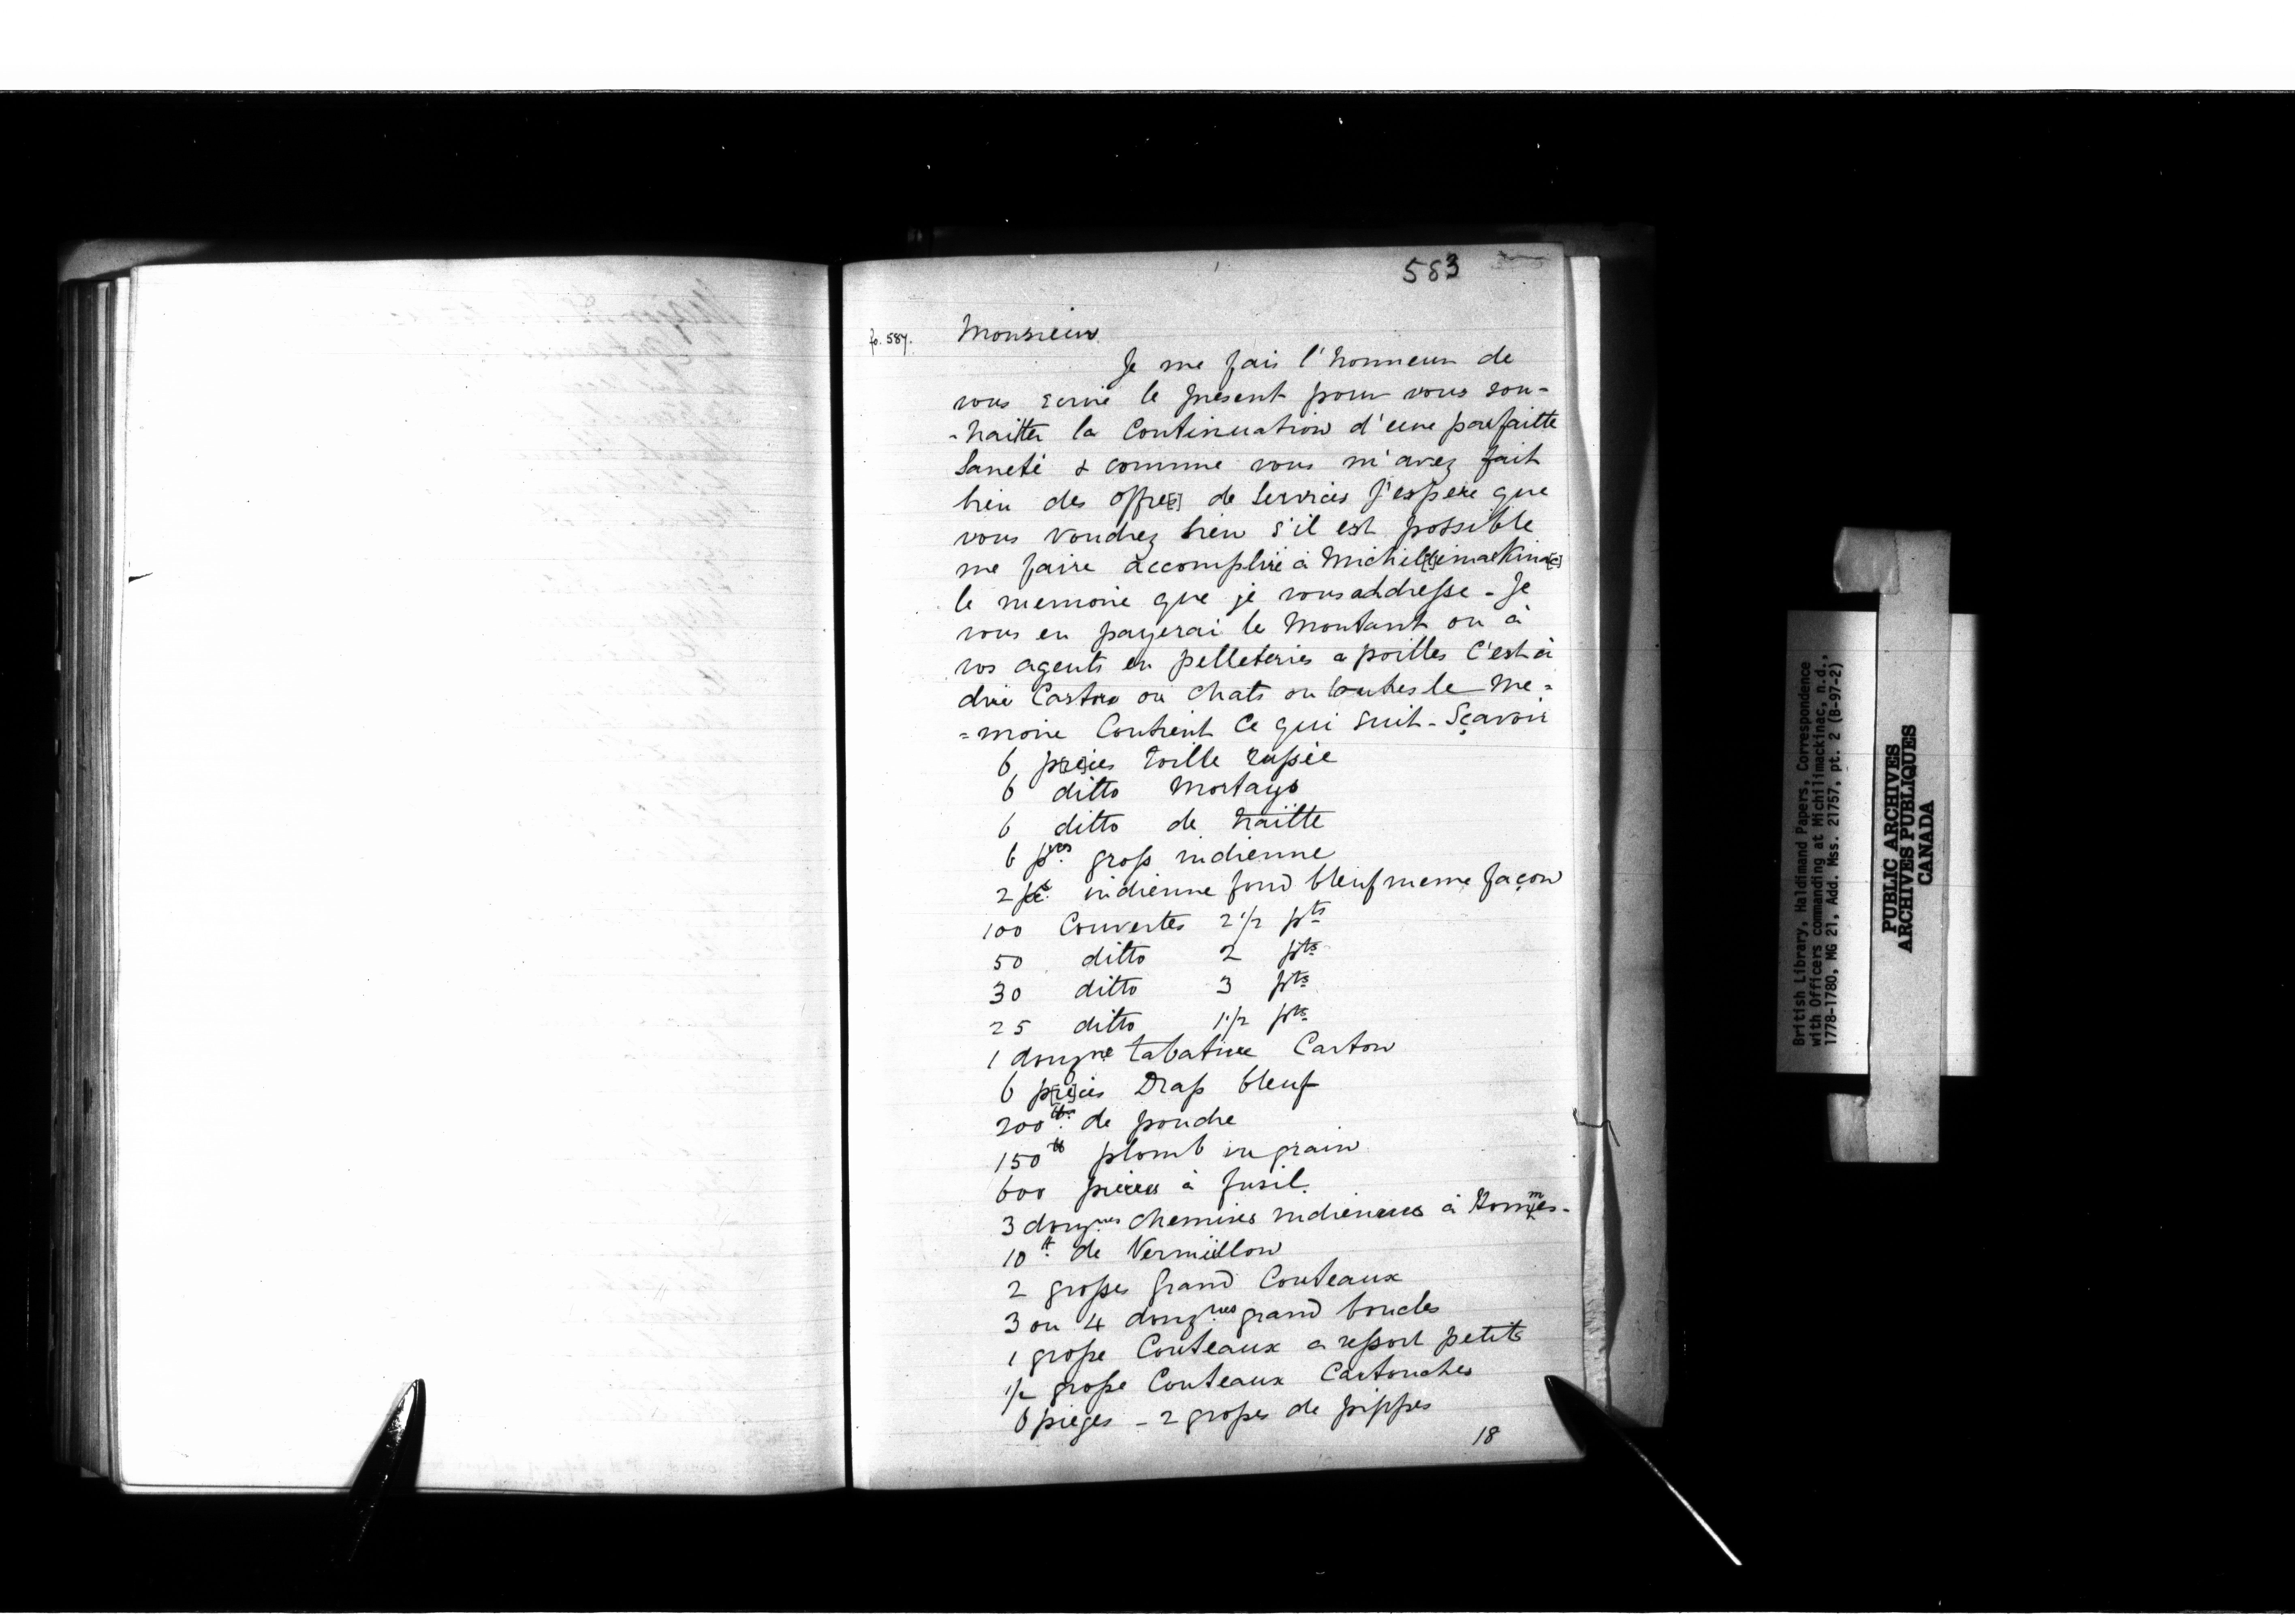 583
fo. 587.
Monsieur
Je me fais l'honneur de
vous ecrire le present pour vous sou-
-haitter la Continuation d'une parfaitte
Saneté & comme vous m'avez fait
bien des offre[s] de Services J'espere que
vous voudrez bien s'il est possible
me faire accomplire à Michil[l]imakina[c]
le memoire que je vous addresse - Je
vous en payerai le Montant ou à
vos agents en pelleteries a poilles C'est à
dire Castors ou Chats ou loutres le Me=
=moire Contient Ce qui suit - Sçavoir
6 pieces toille
6 ditto Mortays
6 ditto de traitte
6 pces gross indienne
2 pce indienne fond bleuf meme façon
100 Couvertes 2 1/2 pts
50 ditto 2 pts
30 ditto 3 pts
25 ditto 1 1/2 pts
1 douzne tabatiere Carton
6 p[ie]ces Drap bleuf
200 lb. de poudre
150 lb plomb en grain
600 pierres à fusil.
3 douznes chemises indiennes à Hommes -
10 lb. de Vermillon
2 grosses Grand Couteaux
3 ou 4 douz.nes grand boucles
1 grosse Couteaux a ressort petits
1/2 grosse Couteaux Cartouches
6 pieges - 2 grosses de pippes
18
British Library, Haldimand Papers, Correspondence
with Officers commanding at Michilimackinac, n.d.,
1778-1780, MG 21, Add. Mss. 21757, pt. 2 (B-97-2)
PUBLIC ARCHIVES
ARCHIVES PUBLIQUES
CANADA